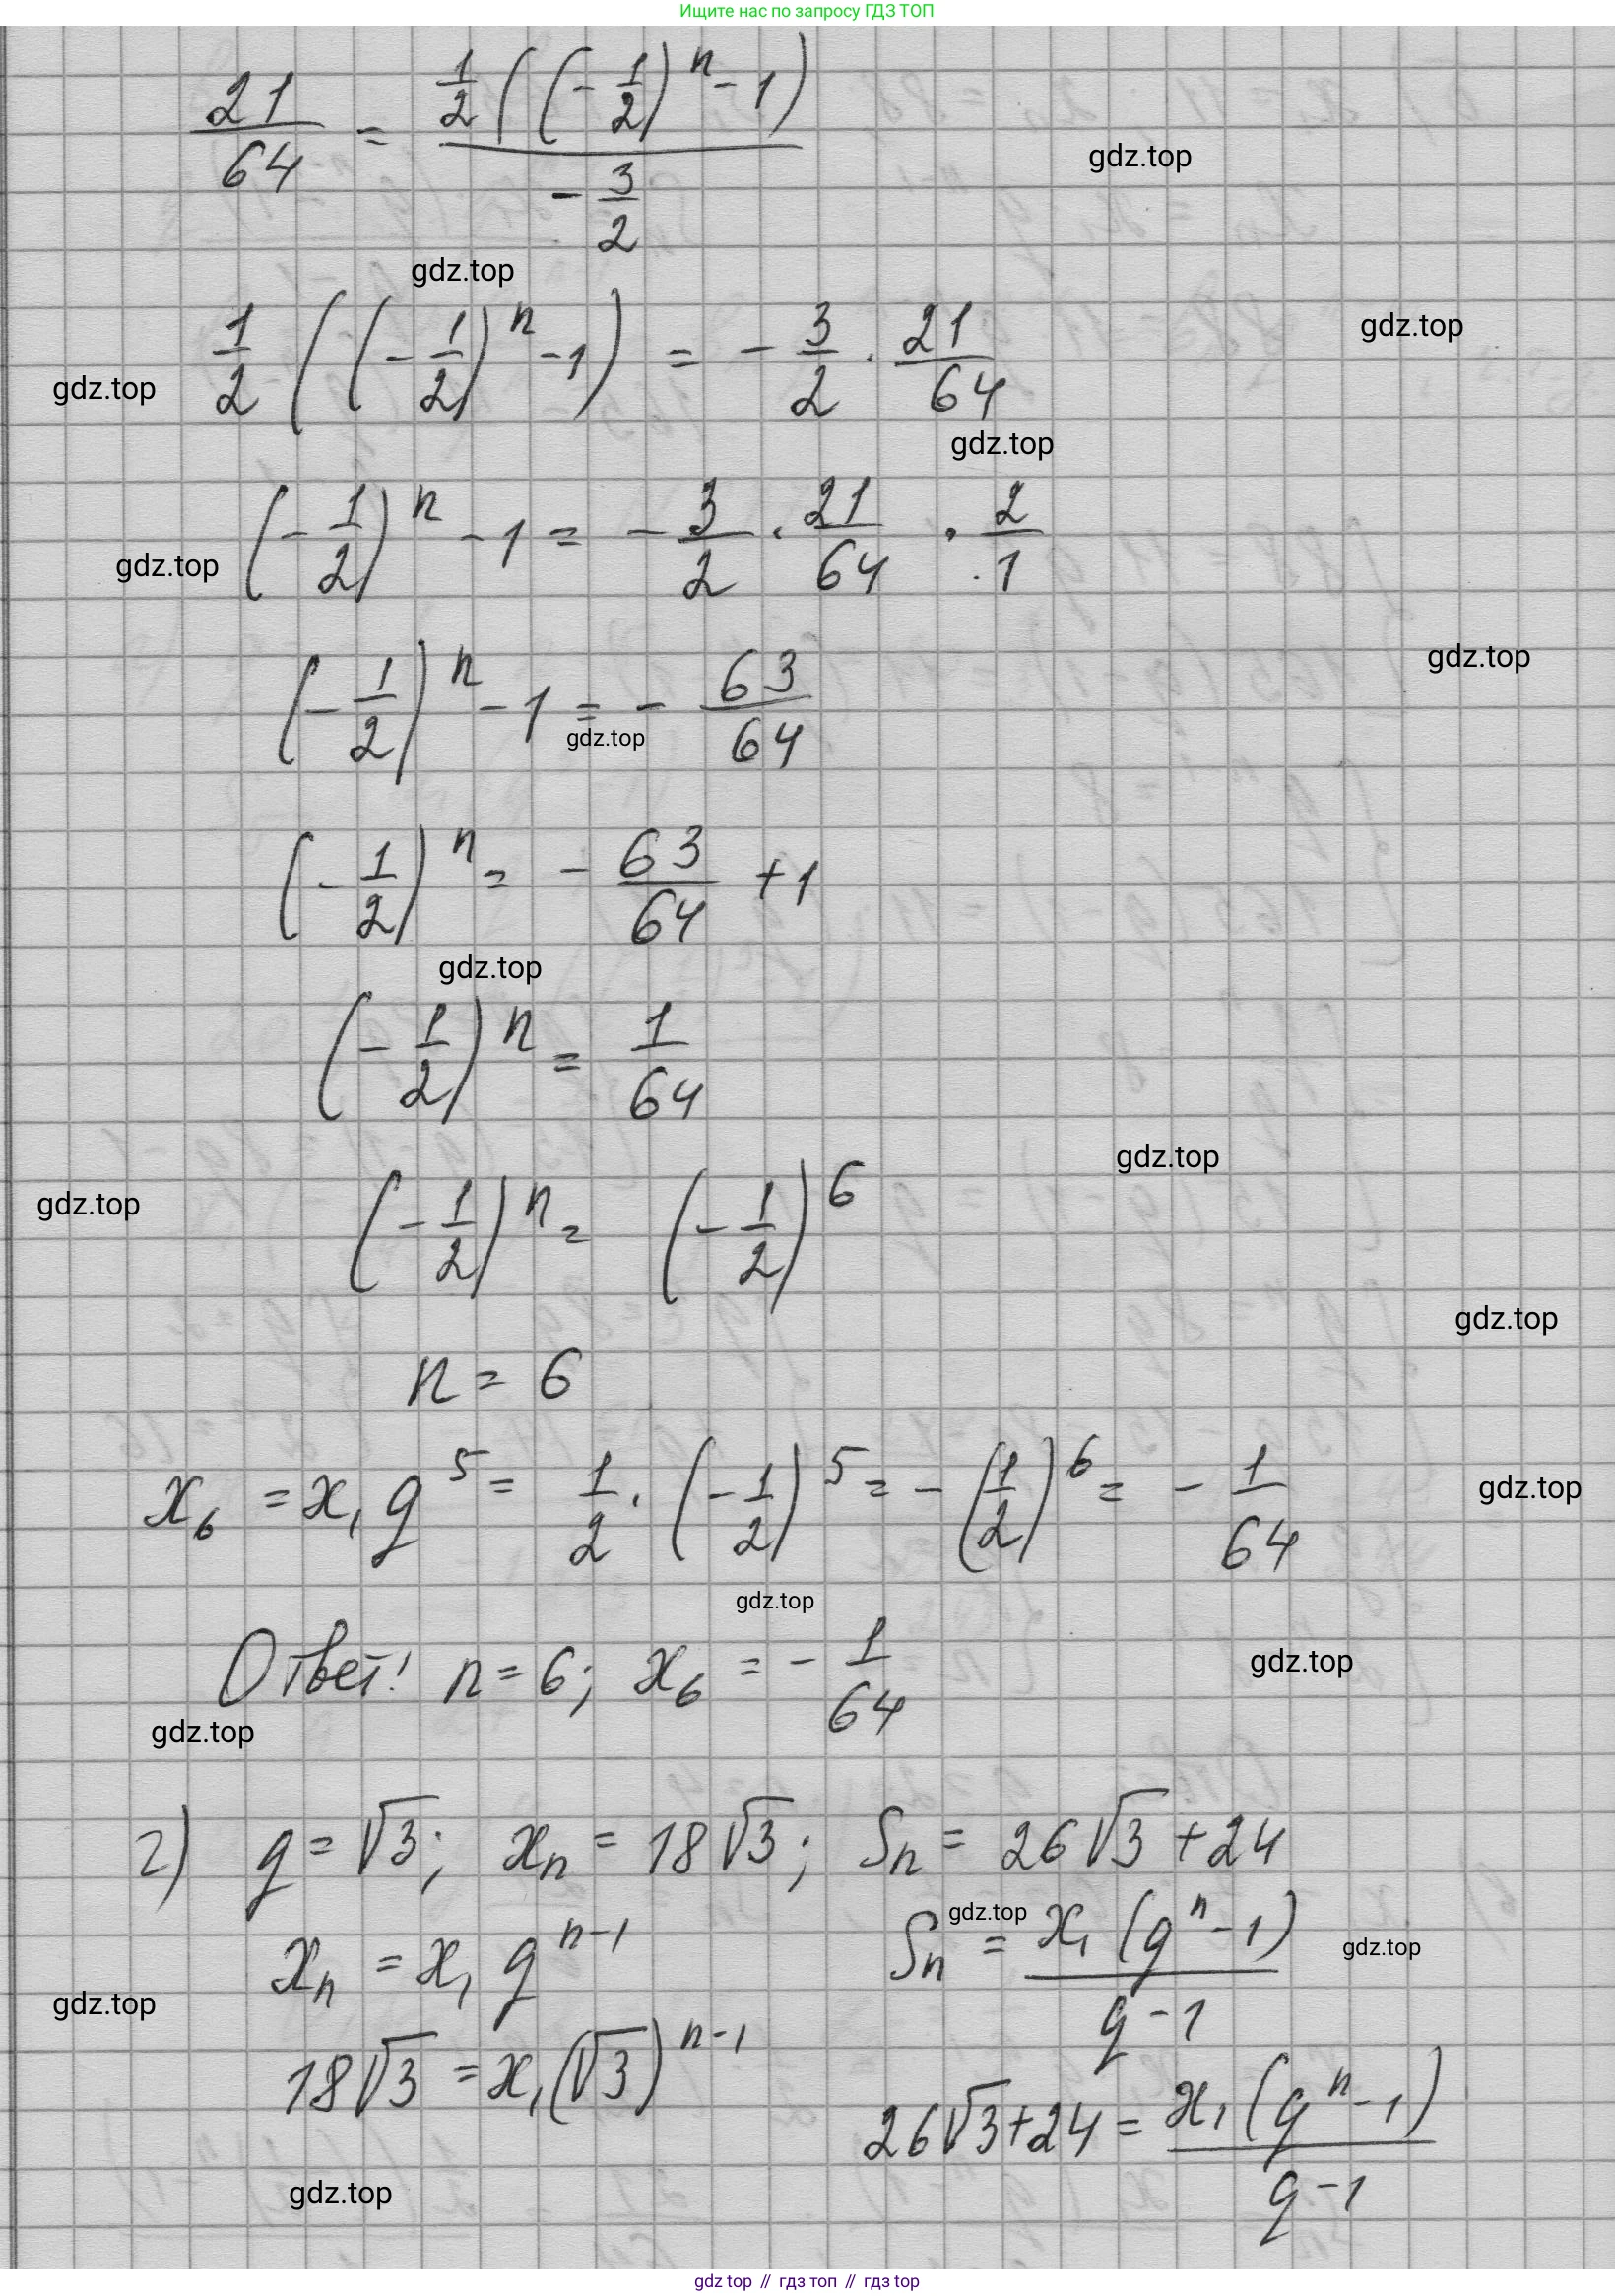 Ищите нас по запросу ГДЗ ТОП
21/64 = (1/2((-1/2)^n - 1))/(-3/2)
gdz.top
gdz.top
1/2((-1/2)^n - 1) = -3/2 · 21/64
gdz.top
gdz.top
gdz.top
(-1/2)^n - 1 = -3/2 · 21/64 · 2/1
gdz.top
(-1/2)^n - 1 = -63/64
gdz.top
gdz.top
(-1/2)^n = -63/64 + 1
gdz.top
(-1/2)^n = 1/64
gdz.top
(-1/2)^n = (-1/2)^6
gdz.top
gdz.top
n = 6
x₆ = x₁q^5 = 1/2 · (-1/2)^5 = -(1/2)^6 = -1/64
gdz.top
gdz.top
Ответ: n = 6; x₆ = -1/64
gdz.top
gdz.top
г) q = √3; xₙ = 18√3; Sₙ = 26√3 + 24
gdz.top
xₙ = x₁q^(n-1) Sₙ = (x₁(q^n - 1))/(q - 1)
gdz.top
gdz.top
18√3 = x₁(√3)^(n-1)
26√3 + 24 = (x₁(q^n - 1))/(q - 1)
gdz.top
gdz top // гдз топ // гдз top